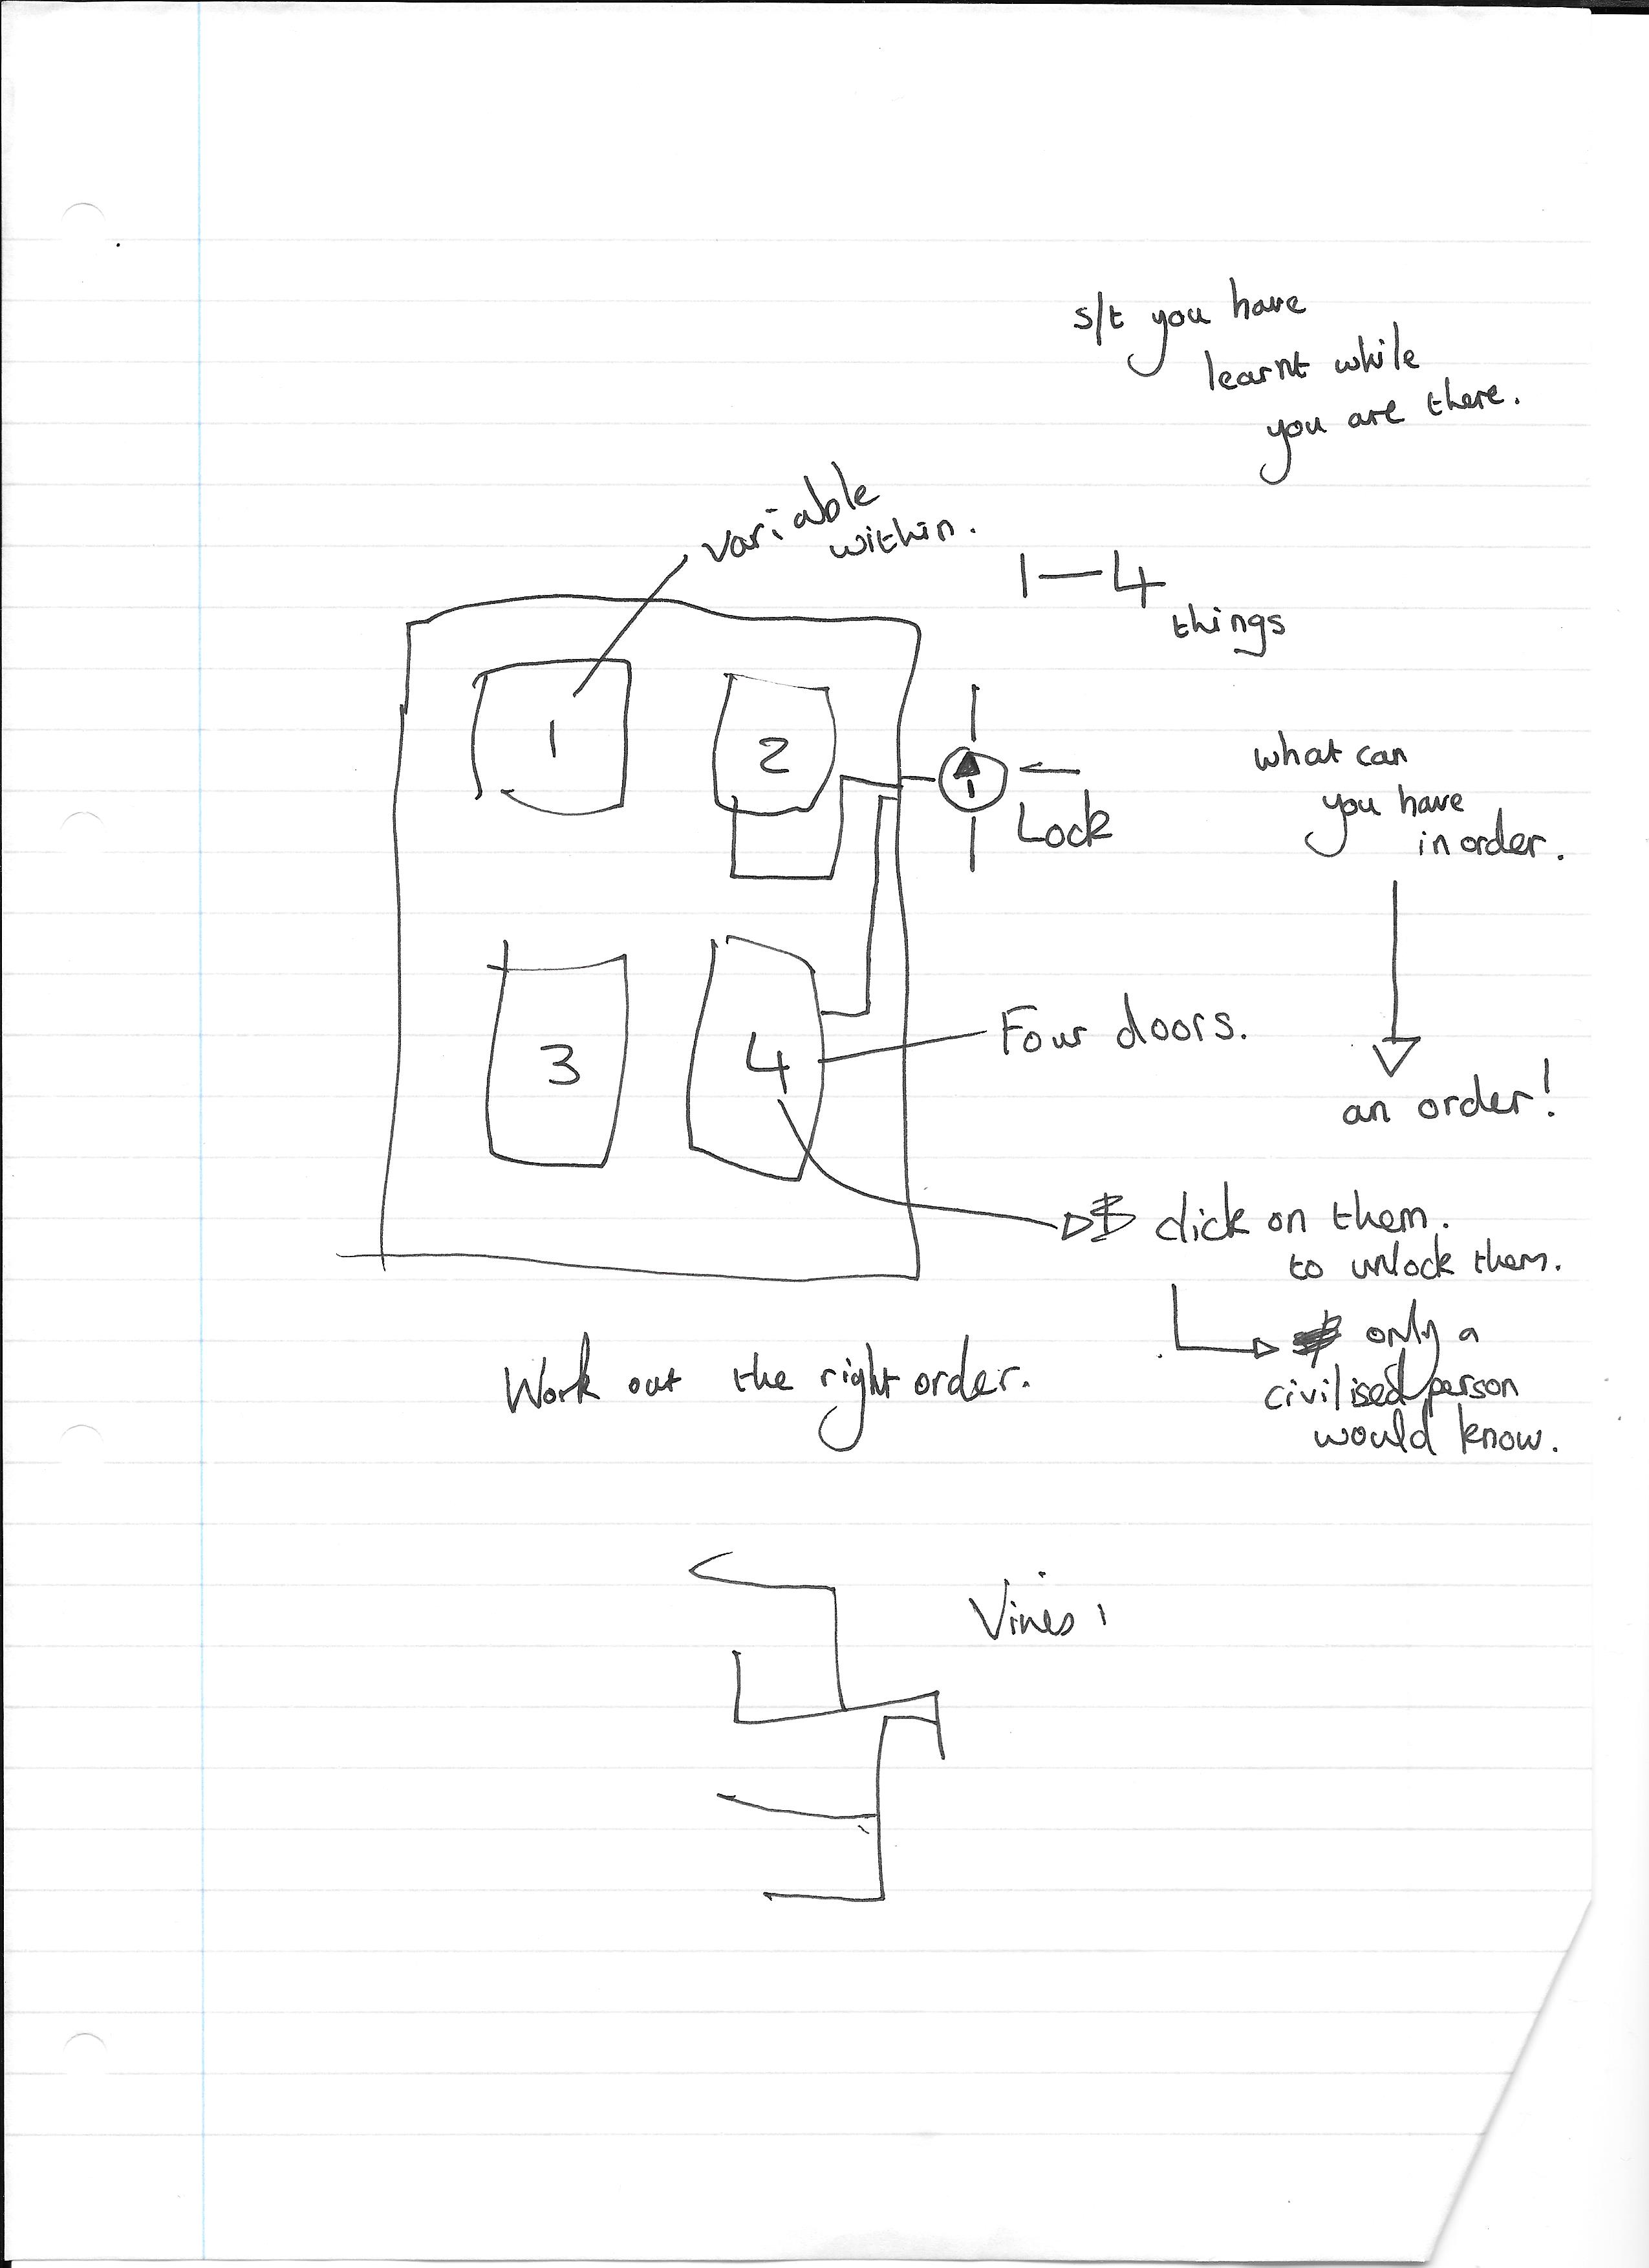 s/t you have
learnt while
you are there.
variable
within.
1—4
things
1
2
Lock
what can
you have
in order.
3
4
Four doors.
an order!
click on them.
to unlock them.
only a
civilised person
would know.
Work out the right order.
Vines